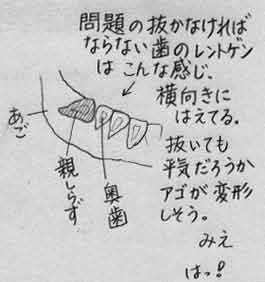 問題の抜かなければ
ならない歯のレントゲン
は こんな感じ.
横向きに
はえてる。
抜いても
平気だろうか
アゴが変形
しそう。
みえ
はっ!
あご
親しらず
奥歯